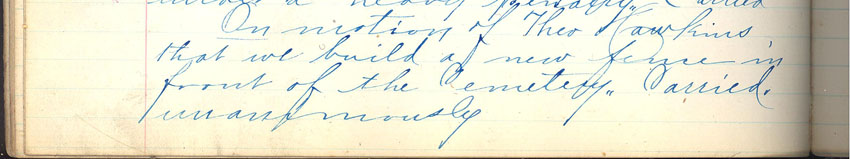 a heavy penalty. Carried
On motion of Theo Hawkins
that we build a new fence in
front of the Cemetery. Carried.
unanymously